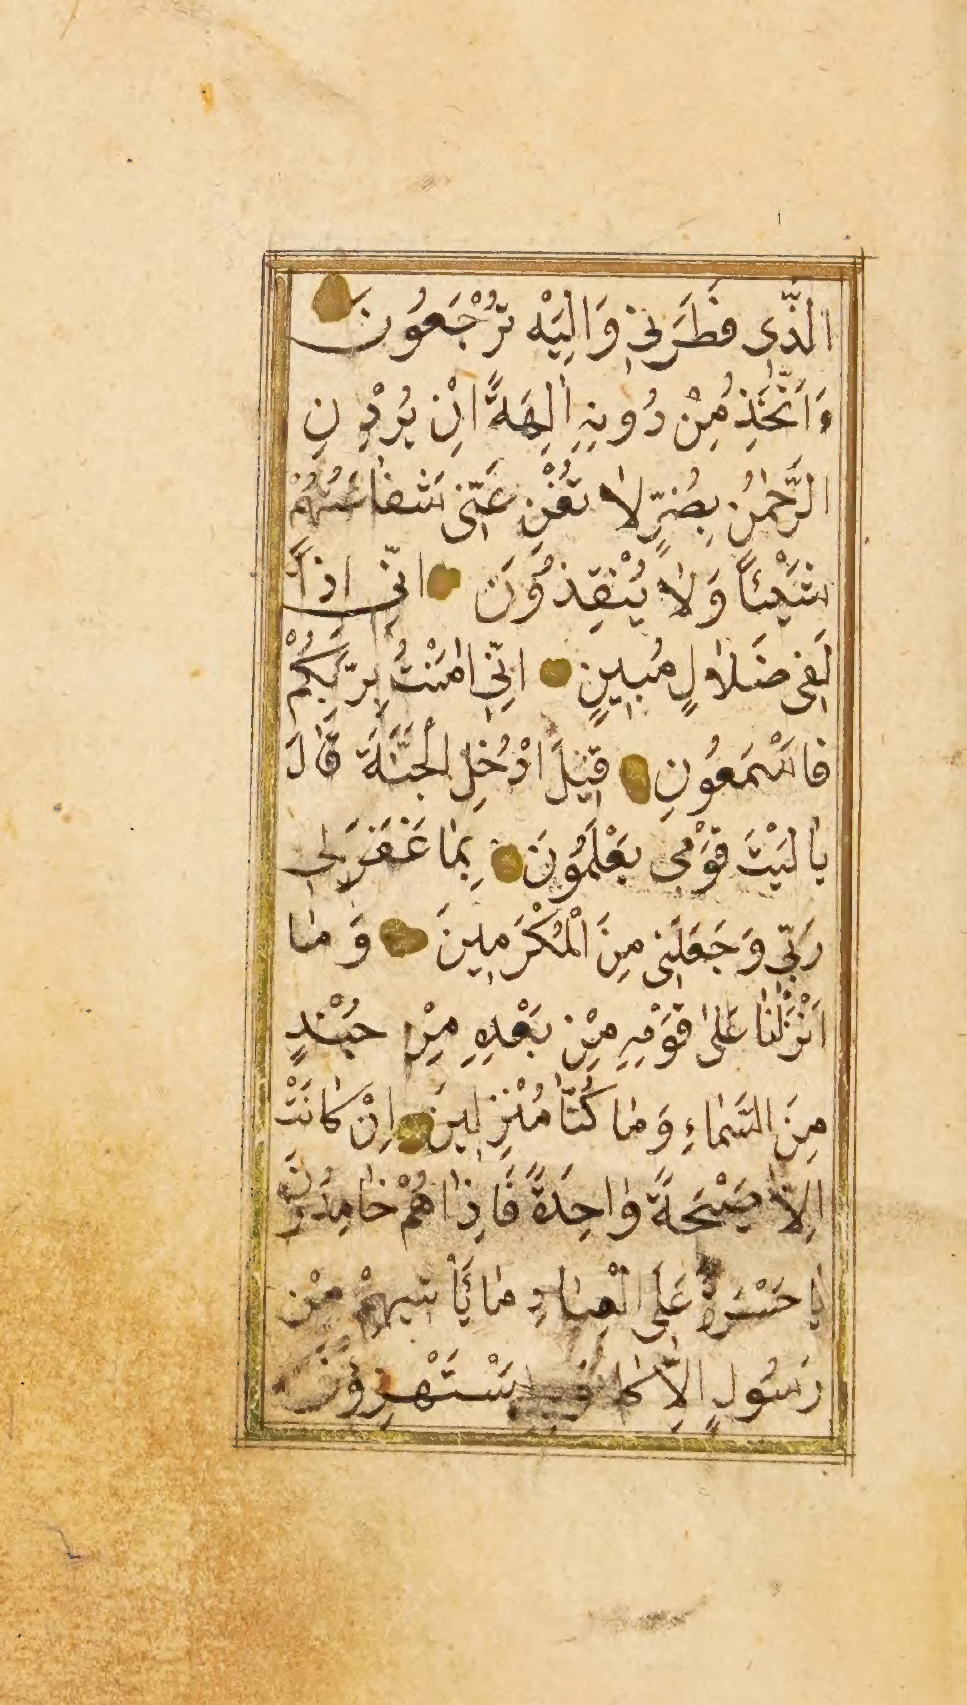 الَّذِى فَطَرَنِى وَاِلَيْهِ تُرْجَعُونَ
ءَاَتَّخِذُ مِنْ دُونِهِ اٰلِهَةً اِنْ يُرِدْنِ
الرَّحْمٰنُ بِضُرٍّ لَا تُغْنِ عَنِّى شَفَاعَتُهُمْ
شَيْئًا وَلَا يُنْقِذُونَ اِنِّى اِذًا
لَفِى ضَلَالٍ مُبِينٍ اِنِّى اٰمَنْتُ بِرَبِّكُمْ
فَاسْمَعُونِ قِيلَ ادْخُلِ الْجَنَّةَ قَالَ
يَا لَيْتَ قَوْمِى يَعْلَمُونَ بِمَا غَفَرَ لِى
رَبِّى وَجَعَلَنِى مِنَ الْمُكْرَمِينَ وَمَا
اَنْزَلْنَا عَلٰى قَوْمِهِ مِنْ بَعْدِهِ مِنْ جُنْدٍ
مِنَ السَّمَاءِ وَمَا كُنَّا مُنْزِلِينَ اِنْ كَانَتْ
اِلَّا صَيْحَةً وَاحِدَةً فَاِذَا هُمْ خَامِدُونَ
يَا حَسْرَةً عَلَى الْعِبَادِ مَا يَأْتِيهِمْ مِنْ
رَسُولٍ اِلَّا كَانُوا بِهِ يَسْتَهْزِؤُنَ